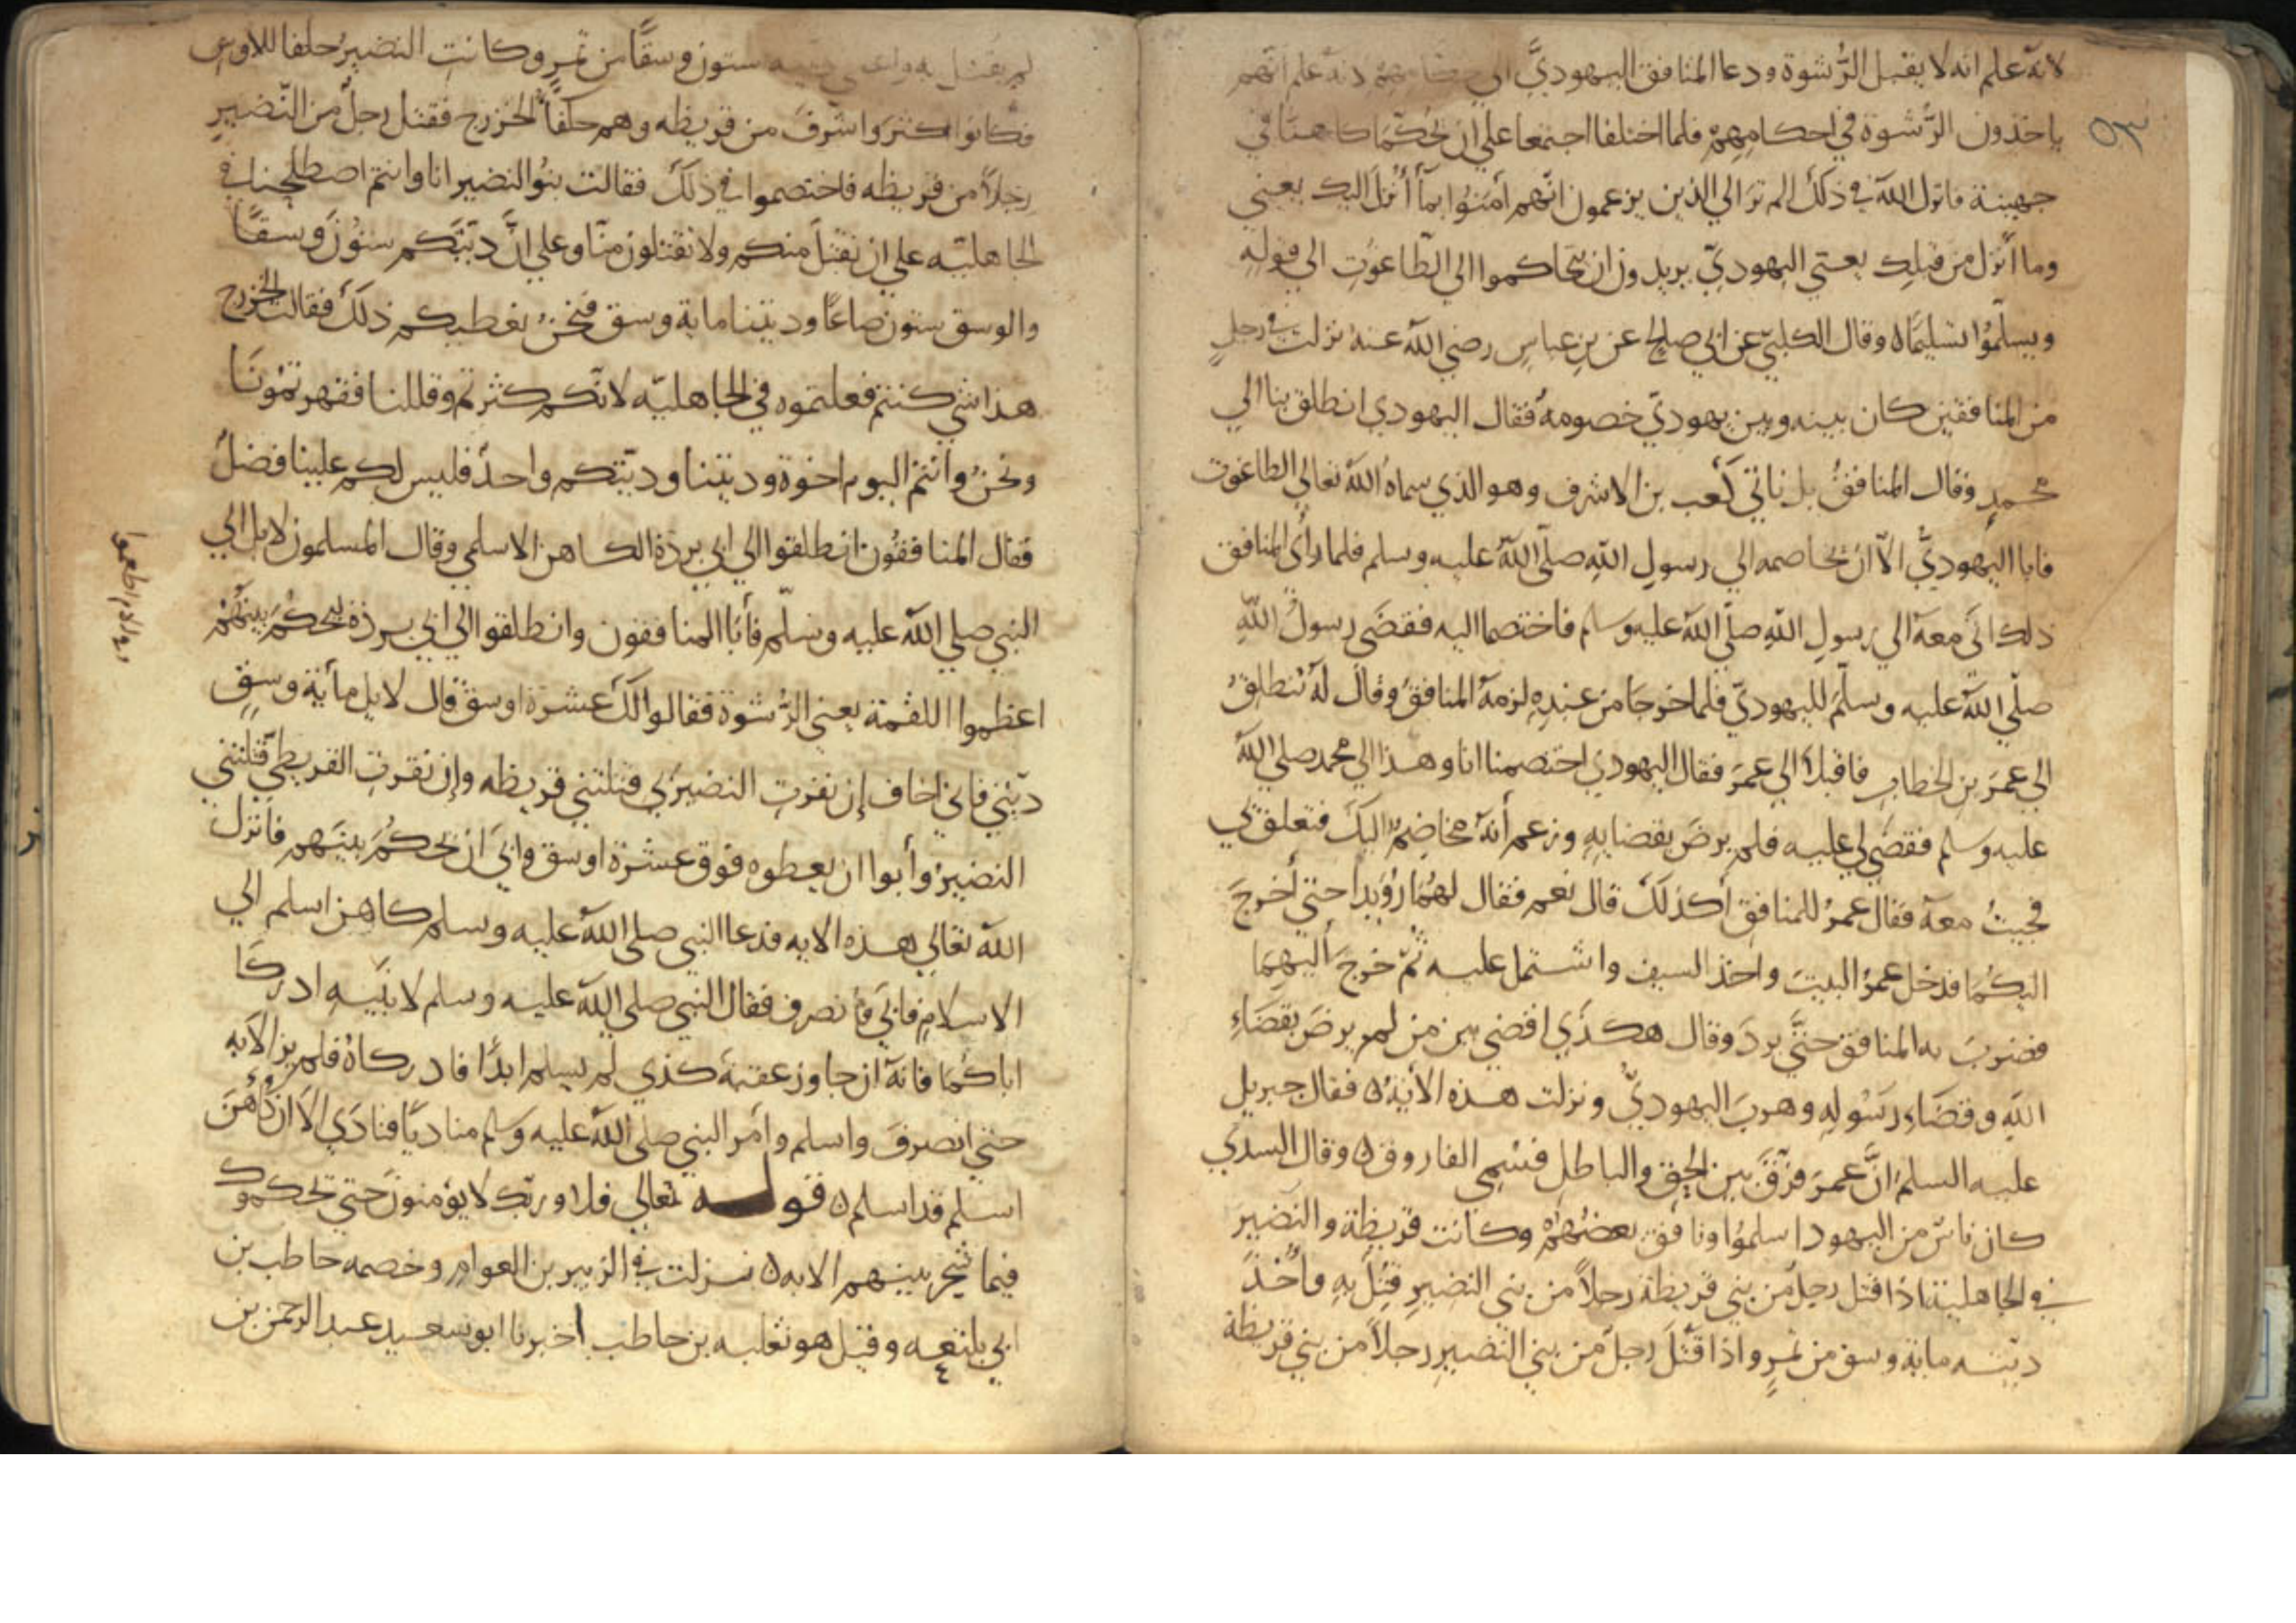 لانه علم انه لا يقبل الرُّشوة ودعا المنافق اليهوديَّ الي حكامهم لانه علم انهم
٥٣
ياخذون الرَّشوة في احكامِهِمْ فلما اختلفا اجتمعا علي ان يُحكّما كاهنا في
جهينة فانزل الله في ذلك الم ترَ الي الذين يزعمون انّهم اٰمَنُوا بمآ أُنْزلَ اليك يعني
وما أنزل من قبلِك يعني اليهوديّ يريدون ان يتحاكموا الي الطّاغُوتِ الي قولِهِ
ويسلّمُوا تسليمًا ه وقال الكلبيّ عن ابي صالح عن بنِ عباسٍ رضي الله عنهُ نزلت في رجلٍ
من المنافقين كان بينه وبين يهوديّ خصومة فقال اليهودي انطلق بنا الي
محمدٍ وقال المنافقُ بل ناتي كعب بن الاشرف وهو الذي سماهُ الله تعالي الطاغوت
فابا اليهوديُّ الّا ان يخاصمه الي رسولِ اللهِ صلّى اللهُ عليه وسلم فلما رأى المنافق
ذلك اتَى معهُ الي رسولِ اللهِ صلّى اللهُ عليه وسلم فاختصما اليه فقضَى رسولُ اللهِ
صلّي الله عليه وسلّمَ لليهوديّ فلما خرجَا من عندِهِ لزمهُ المنافقُ وقال له نَنطلقُ
الي عمرَ بنِ الخطاب فاقبلا الي عمرَ فقال اليهودي اختصمنا انا وهذا الي محمد صلي الله
عليه وسلم فقضَي لي عليه فلم يرضَ بقضايِهِ وزعم أنهُ مخاصِمٌ اليك فتعلق بي
فجيتُ معهُ فقال عمرُ للمنافِقِ أكذلكَ قال نعم فقال لهُمَا رُوَيدا حتي أخرجَ
اليكُمَا فدخل عمرُ البيتَ واخذ السيف واشتمل عليه ثمّ خرجَ اليهِمَا
فضربَ به المنافق حتَّي بردَ وقال هكذَي اقضي بين من لم يرضَ بقضاءِ
اللهِ وقضاءِ رَسُولِهِ وهربَ اليهوديُّ ونزلت هذه الأيةُ ه فقال جبريل
عليه السلمُ انَّ عمرَ فرّقَ بين الحقِ والباطل فسُمي الفاروق ه وقال السدي
كان ناسٌ من اليهود اسلمُوا ونافق بعضُهُمْ وكانت قريظة والنضيرَ
في الجاهلية اذا قتل رجل من بني قريظة رجلاً من بني النضيرِ قُتِلَ بهِ واُخذَ
ديته ماية وسق من تمرٍ واذا قَتَلَ رجل من بني النضيرِ رجلاً من بني قريظة
لم يقتل به واعطي ديته ستون وسقًا من تمرٍ وكانتِ النضيرُ حلفا للاوس
فكانوا اكثرَ واشرفَ من قريظه وهم حلفاً الخزرج فقتل رجل من النّضيرِ
رجلاً من قريظه فاختصموا في ذلك فقالت بنُو النضير انا وانتم اصطلحنا في
الجاهليّه علي ان نقتلَ منكم ولا نقتلون منّا وعلي انَّ ديتكم ستُونَ وَسْقًا
والوسق ستون صاعًا وديتنا ماية وسق فنحنُ نعطيكم ذلكَ فقالت الخزرج
هذا شي كنتم فعلتموه في الجاهليّه لانّكم كثرتم وقللنا فقهرتمُونَا
ونحنُ وانتم اليوم اخوة وديتنا وديتكم واحدٌ فليس لكم علينا فضلٌ
فقال المنافقُون انطلقوا الي ابي بردة الكاهن الاسلمي وقال المسلمون لا بل الي
النبي صلي الله عليه وسلّم فأبَا المنافقون وانطلقوا الي ابي بردة ليحكُمَ بينَهُمْ
اعظموا اللقمة يعني الرُّشوة فقالوا لكَ عشرة اوسق قال لا بل مأية وسقٍ
ديتي فاني اخاف إن نفرتِ النضيريّ قتلتني قريظه وإن نفرتِ القريظيّ قتلتني
النضيرُ وأبوا ان يعطوه فوق عشرة اوسق وابَى ان يحكُمَ بينَهم فانزل
الله تعالي هذه الايه فدعا النبي صلي الله عليه وسلم كاهن اسلم الي
الاسلامِ فابَى فانصرف فقال النبي صلي الله عليه وسلم لابنَيهِ ادركَا
اباكُمَا فانّهُ ان جاوز عقبةَ كذي لم يسلم ابدًا فادركاهُ فلم يزالا به
حتي انصرفَ واسلم وأمر النبي صلي الله عليه وسلم مناديًا فنادَي الا ان كاهنَ
اسلم قد اسلم ه قوله تعالي فلا وربّك لا يؤمنونَ حتي يحكموك
فيما شجر بينهم الايه ه نزلت في الزبير بن العوام وخصمه حاطب بن
ابي بلتعه وقيل هو ثعلبه بن حاطب اخبرنا ابو سعيد عبد الرحمن بن